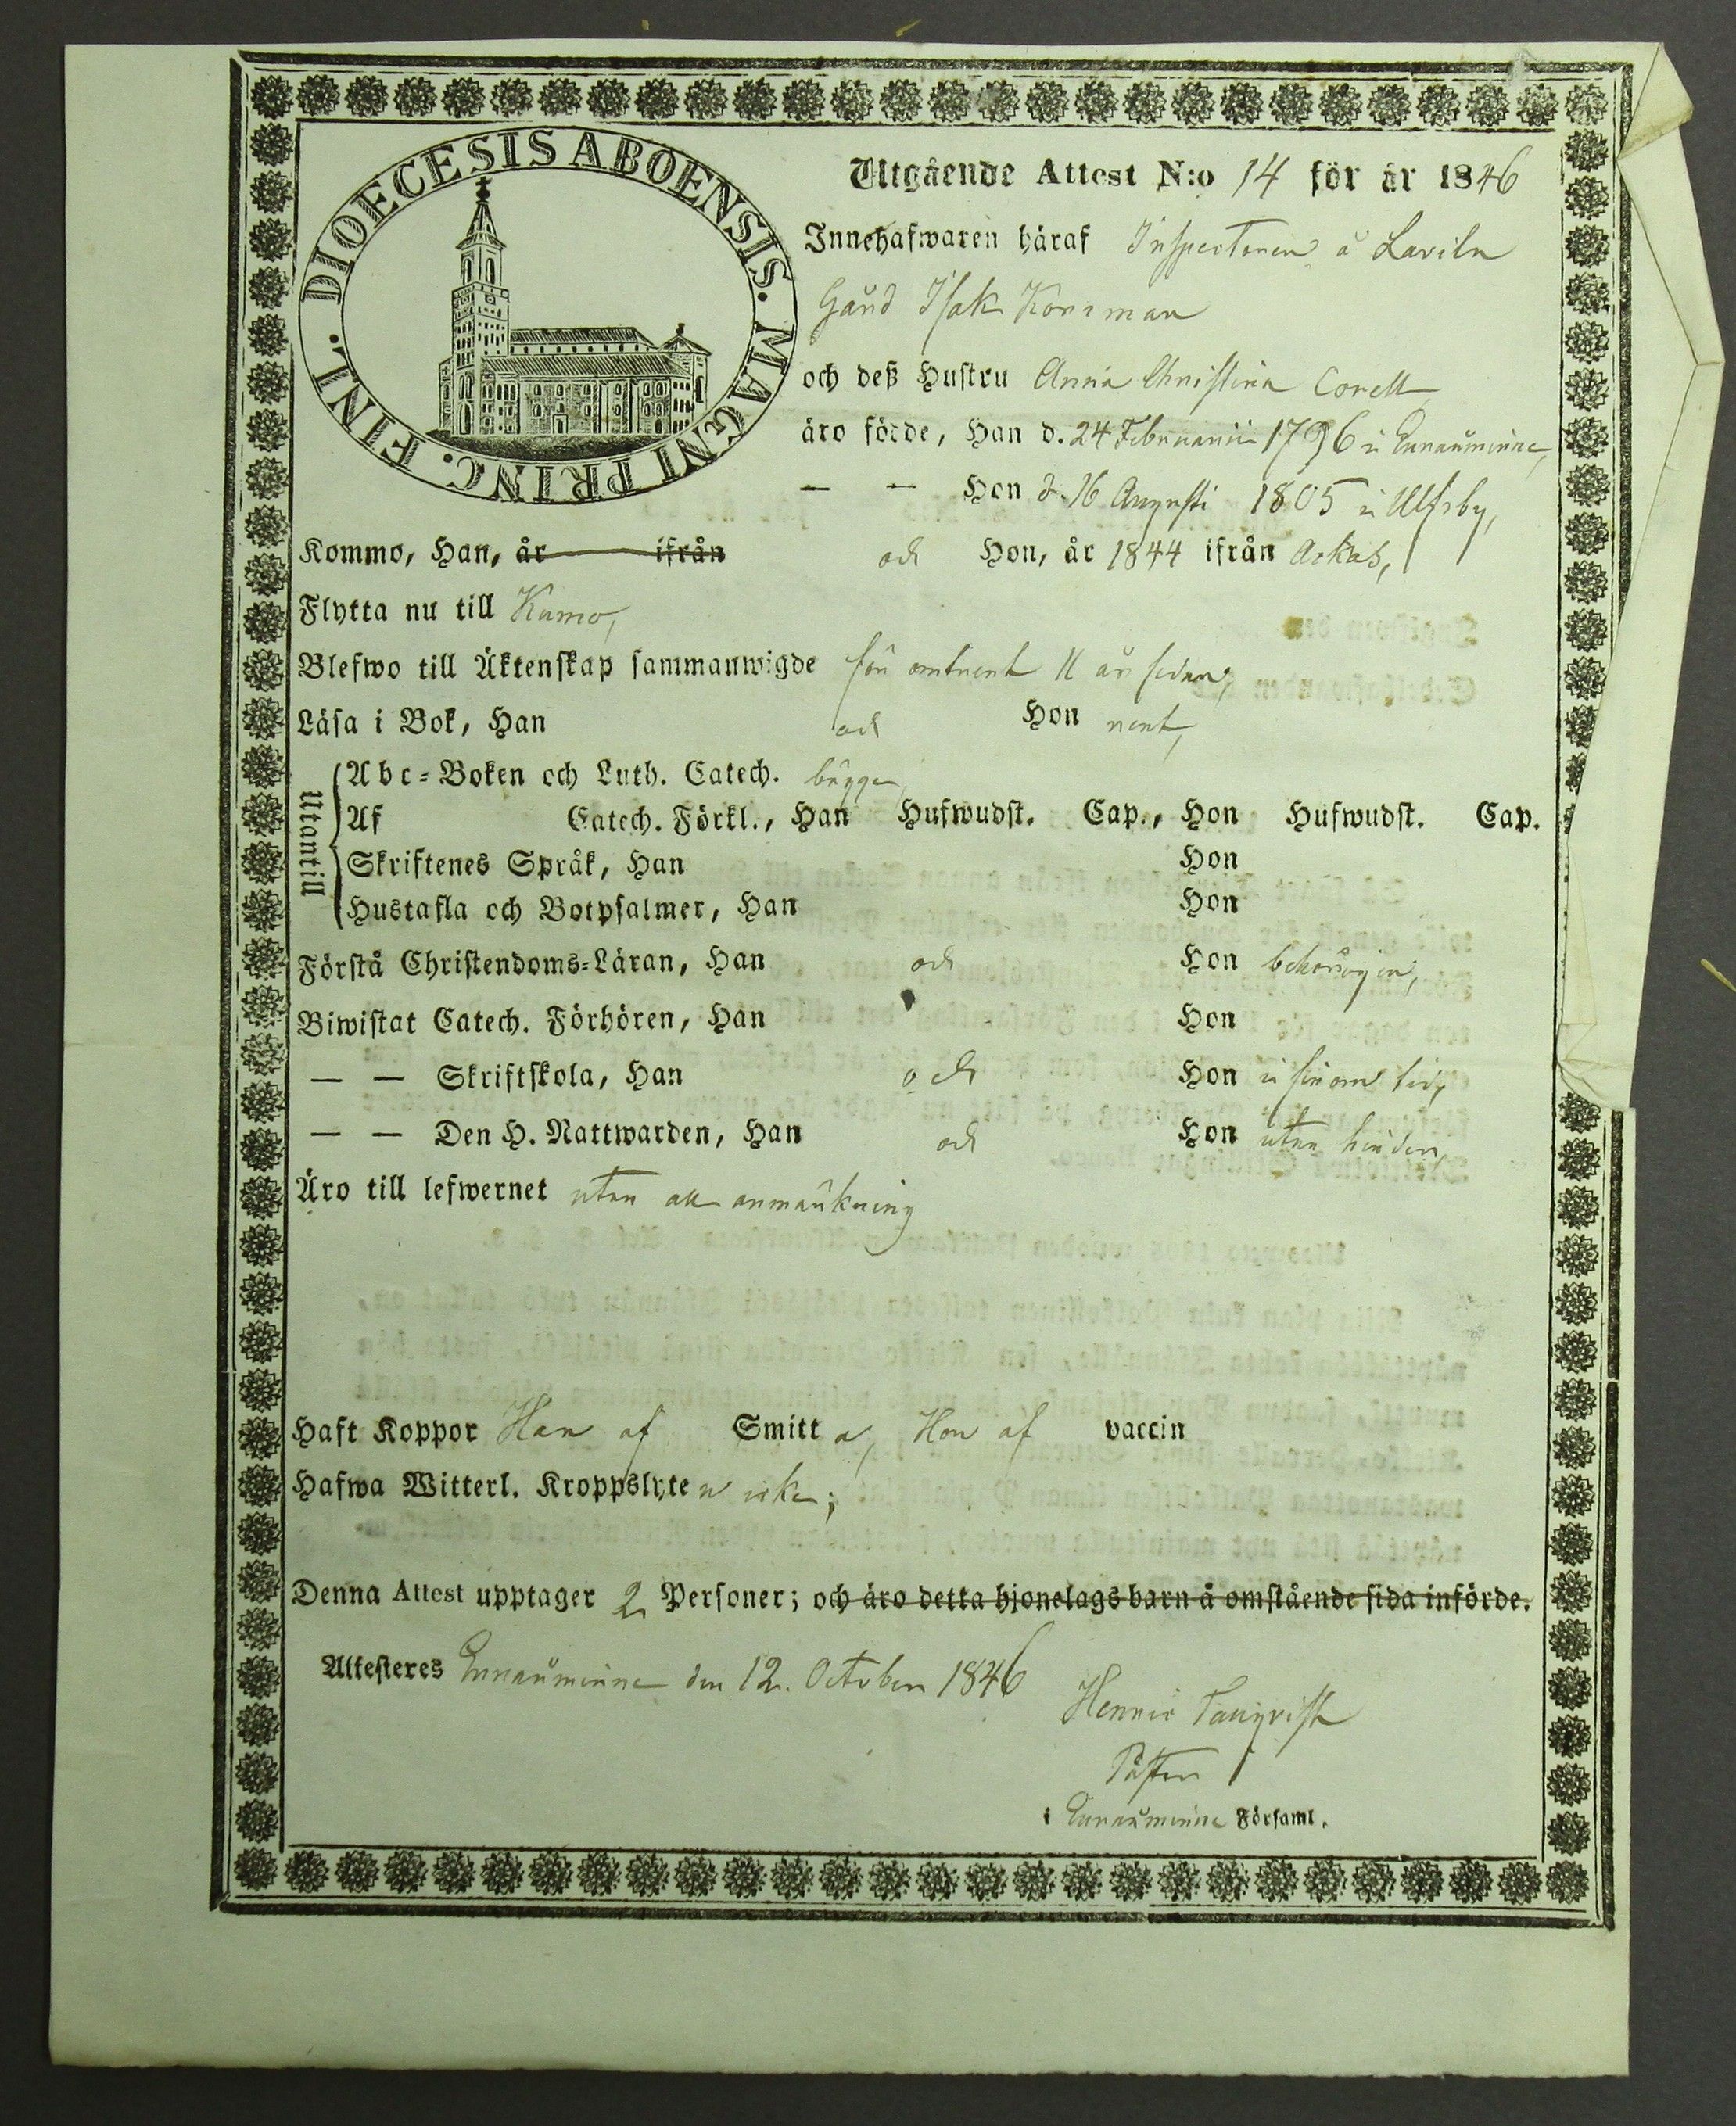 DIOECESIS ABOENSIS. MAGNI PRINC. FINL.
Utgående Attest N:o 14 för år 1846
Innehafwaren häraf Inspectoren å Lavila
Gård Isak Korsman
och deß Hustru Anna Christina Corell
äro födde, Han d. 24 Februarii 1796 i Eurauminne,
— — Hon d. 16 Augusti 1805 i Ulfsby,
Kommo, Han, år ifrån och Hon, år 1844 ifrån Arkas,
Flytta nu till Kumo,
Blefwo till Äktenskap sammanwigde för omtrent 11 år sedan,
Läsa i Bok, Han och Hon rent,
Utantill
Abc-Boken och Luth. Catech. begge,
Af Catech. Förkl., Han Hufwudst. Cap., Hon Hufwudst. Cap.
Skriftenes Språk, Han Hon
Hustafla och Botpsalmer, Han Hon
Förstå Christendoms-Läran, Han och Hon behörigen,
Biwistat Catech. Förhören, Han Hon
— — Skriftskola, Han och Hon i sinom tid,
— — Den H. Nattwarden, Han och Hon utan hinder,
Äro till lefwernet utan all anmärkning
Haft Koppor Han af Smitta, Hon af vaccin
Hafwa Witterl. Kroppslyten icke;
Denna Attest upptager 2 Personer; och äro detta hjonelags barn å omstående sida införde.
Attesteres Eurauminne den 12. October 1846
Henric
Pastor
i Eurauminne Församl.